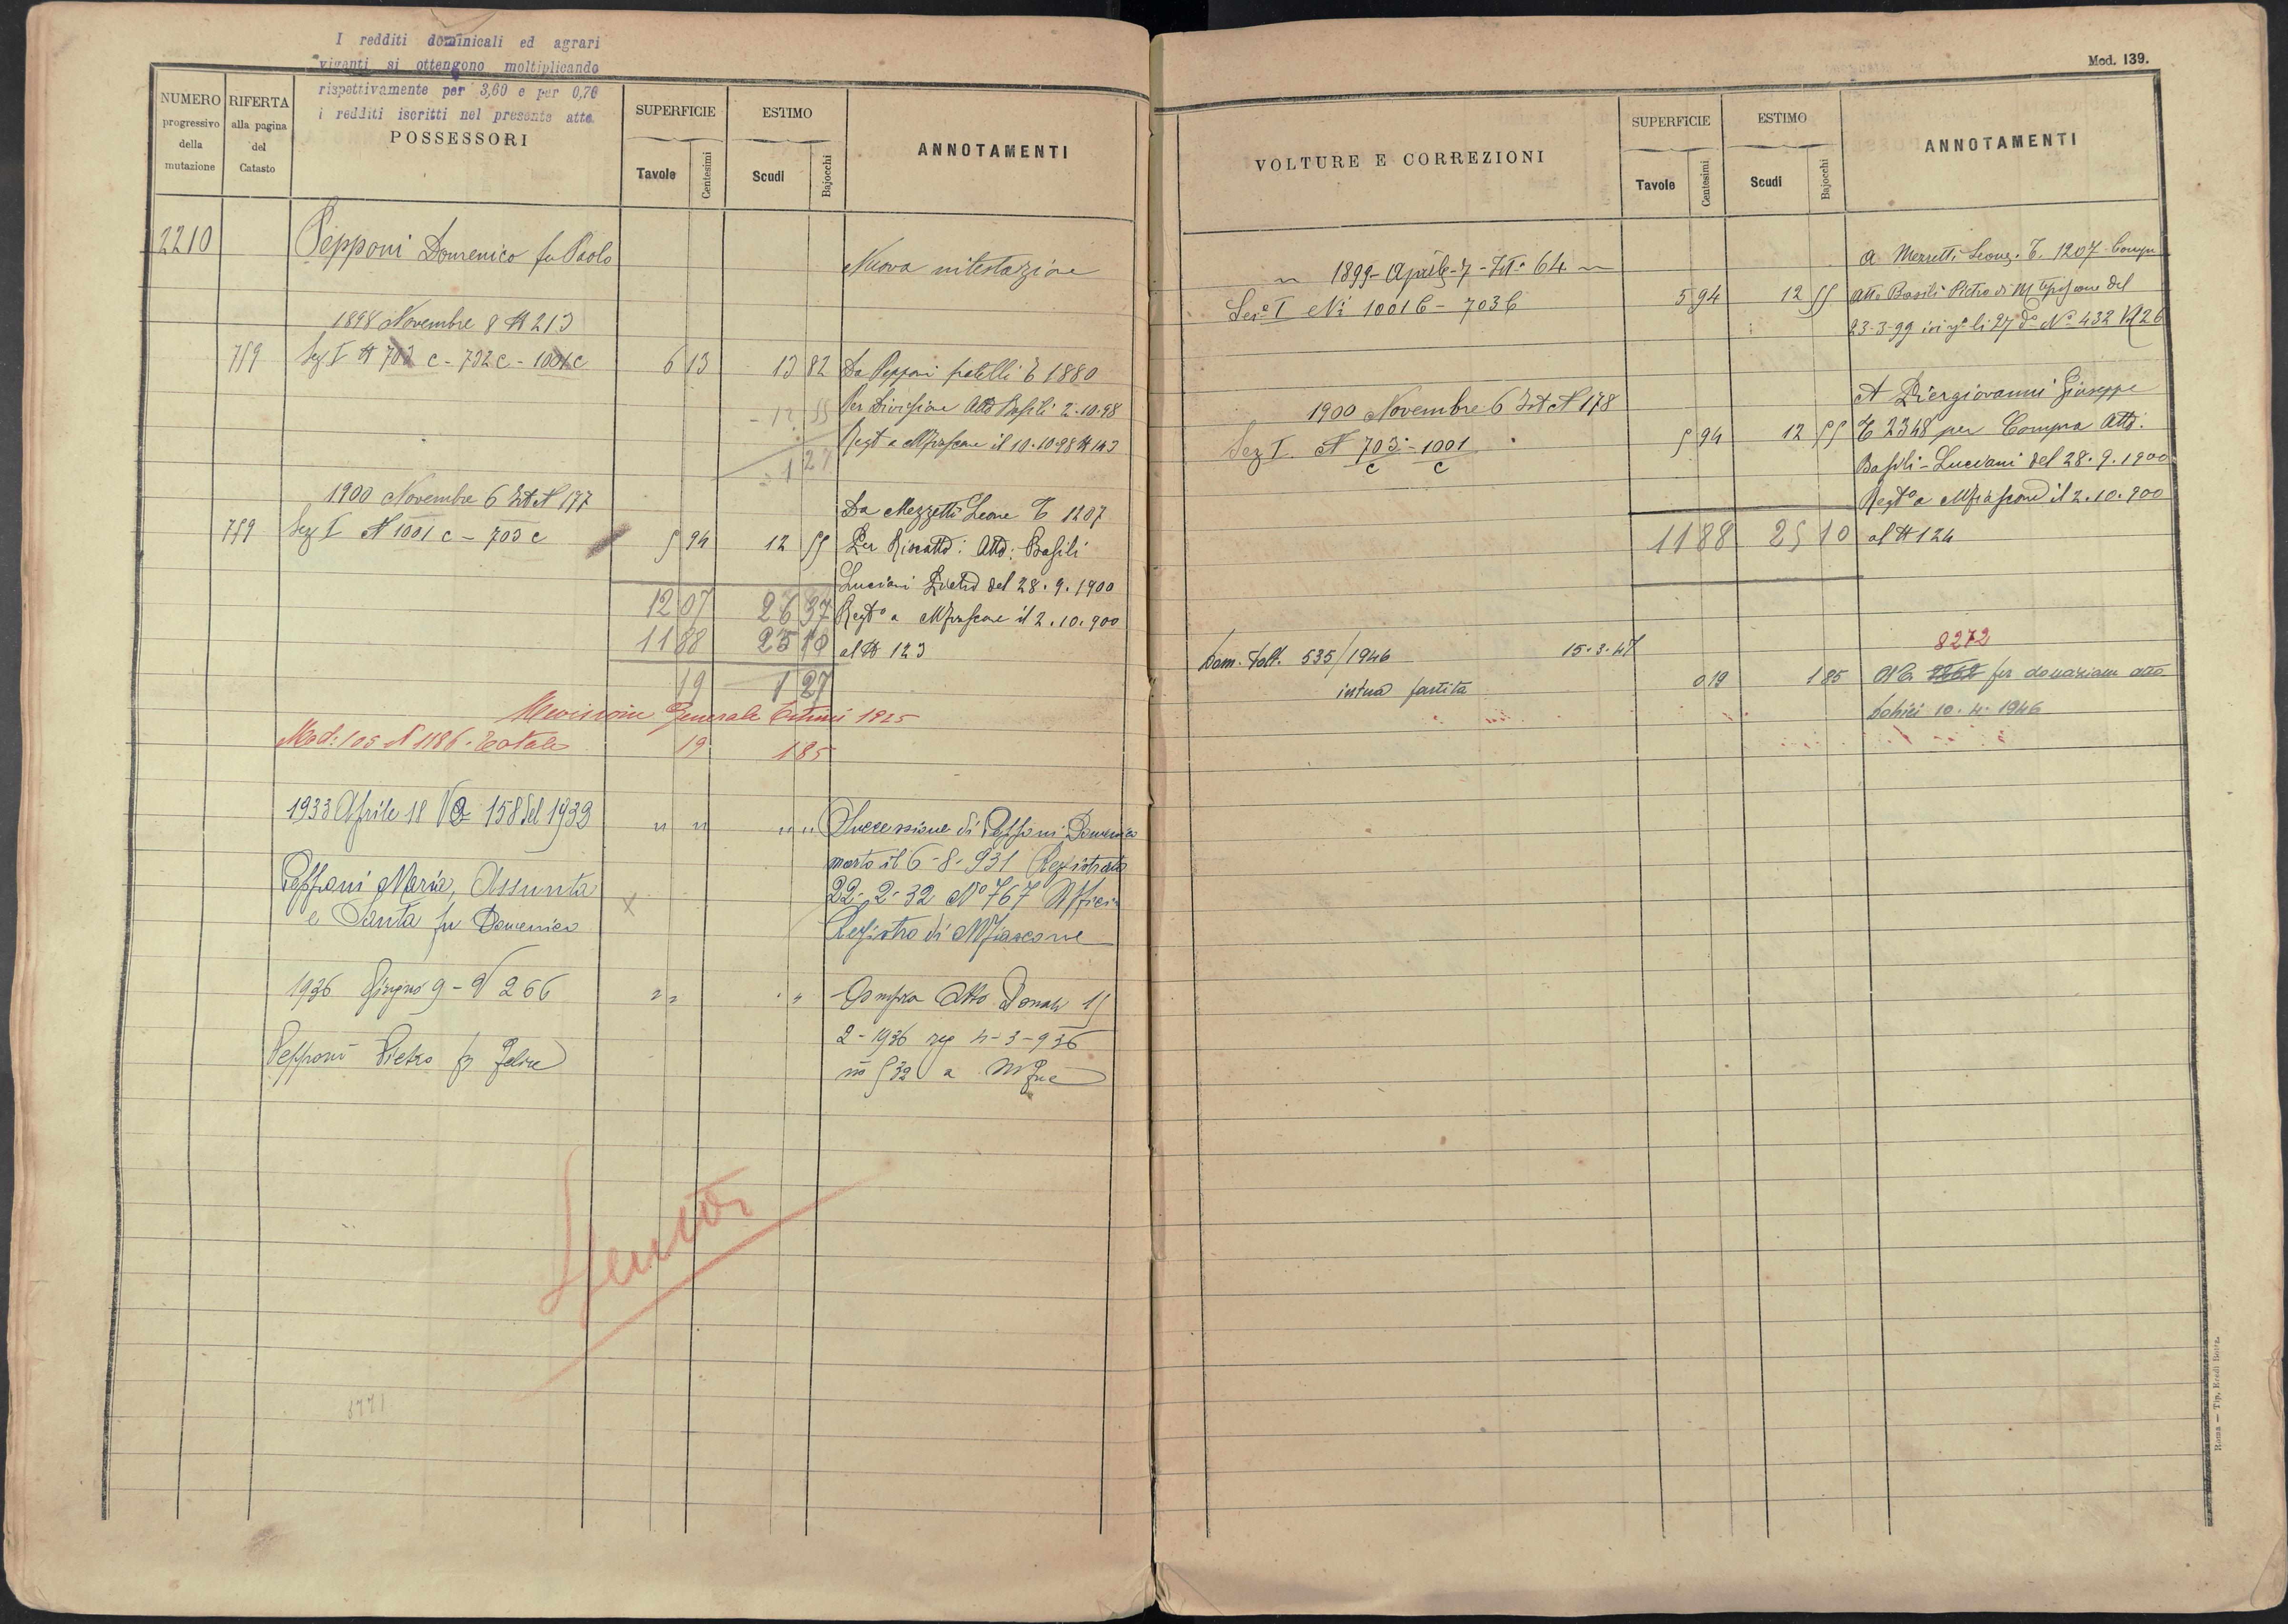 I redditi dominicali ed agrari
vigenti si ottengono moltiplicando
rispettivamente per 3,60 e per 0,70
i redditi iscritti nel presente atto.
NUMERO progressivo della mutazione
RIFERTA alla pagina del Catasto
POSSESSORI
SUPERFICIE
Tavole Centesimi
ESTIMO
Scudi Bajocchi
ANNOTAMENTI
2210 Pepponi Domenico fu Paolo
Nuova intestazione
1898 Novembre 8 N 213
759 Sez I N 703 c - 732 c - 1001 c 6 13 13 82 Da Pepponi fratelli T 1880
12 55 Per Divisione Atto Basili 2.10.98
Regto a Mfiascone il 10.10.98 N 143
1 27
1900 Novembre 6 N 177
Da Mezzetti Leone T 1207
759 Sez I N 1001 c - 703 c 5 94 12 55 Per Riscatto: Atto: Basili
Luciani del 28.9.1900
12 07 26 37 Regto a Mfiascone il 2.10.900
11 88 25 10 al N 123
19 1 27
Revisione Generale Estimi 1925
Mod: 105 N 1186. Totale 19 1 85
1933 Aprile 18 158 del 1933 " " " " Successione di Pepponi Domenico
morto il 6-8-931 Registrata
Pepponi Maria, Assunta 22-2-32 No 767 Ufficio
e Santa fu Domenico X
Registro di Mfiascone
1936 Giugno 9 - N 266 " " " " Compra Atto Donati 15
2-1936 reg 4-3-936
Pepponi Pietro fu Felice
no 532 a
3771
Mod. 139.
VOLTURE E CORREZIONI
SUPERFICIE
Tavole Centesimi
ESTIMO
Scudi Bajocchi
ANNOTAMENTI
1899 - Aprile - 7 - 64
A Mezzetti Leone. T. 1207 Compra
Sez. I Ni 1001 c - 703 c 5 94 12 55 Atto Basili Pietro di Mfiascone del
23-3-99 li 27 do No 432
1900 Novembre 6 N 178
A Piergiovanni Giuseppe
Sez I. N 703 c - 1001 c 5 94 12 55 T 2348 per Compra Atto:
Basili - Luciani del 28.9.1900
Regto a Mfiascone il 2.10.900
11 88 25 10 al N 124
8272
Dom. Volt. 535/1946 15.3.47
intera partita 0 19 1 85 per donazione atto
10.4.1946
Roma — Tip. Eredi Botta.